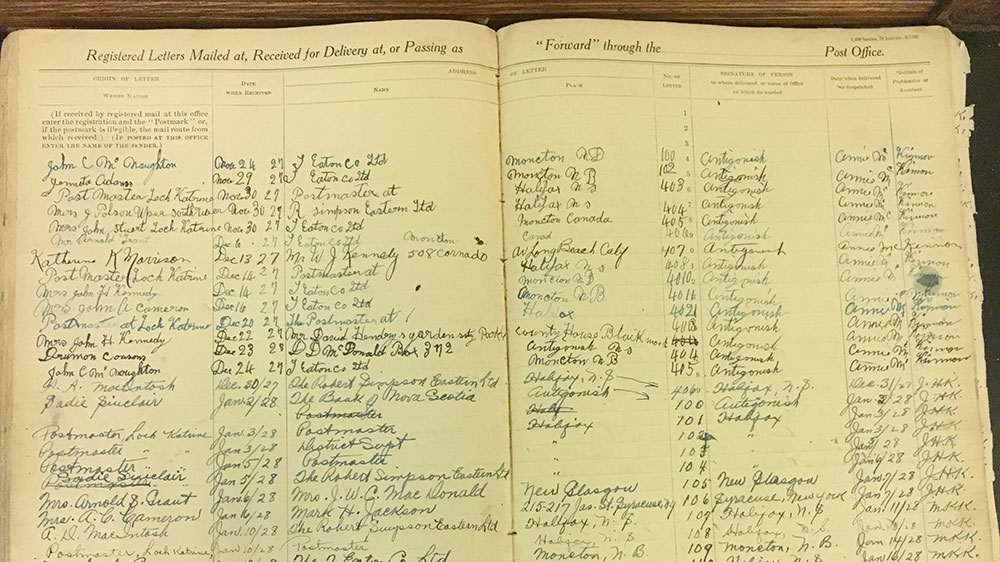 Registered Letters Mailed at, Received for Delivery at, or Passing as "Forward" through the Post Office.
ORIGIN OF LETTER DATE WHEN RECEIVED ADDRESS OF LETTER No. of LETTER SIGNATURE OF PERSON to whom delivered, or name of Office to which forwarded Date when delivered or despatched Initials of Postmaster or Assistant
WHERE MAILED NAME PLACE
(If received by registered mail at this office
enter the registration and the "Postmark" or,
if the postmark is illegible, the mail route from
which received.) (IF POSTED AT THIS OFFICE
ENTER THE NAME OF THE SENDER.)
1
2
3
John C Mc Naughton Nov 24 27 T Eaton Co Ltd Moncton N B 100 Antigonish Annie Mc Kinnon
Adams Nov 29 27 T Eaton Co Ltd Moncton N B 102 Antigonish Annie Mc Kinnon
Post Master Lock Katrine Nov 30 27 Postmaster at Halifax N S 403 Antigonish Annie Mc Kinnon
Mrs J Polson Uper South River Nov 30 27 R Simpson Eastern Ltd Halifax N S 404 Antigonish Annie Mc Kinnon
Mrs John Stuart Lock Katrine Nov 30 27 T Eaton Co Ltd Moncton Canada 405 Antigonish Annie Mc Kinnon
Mr Arnold Grant Dec 6 27 T Eaton Co Ltd Moncton Canad 406 Antigonish Annie Mc
Katharine K Morrison Dec 13 27 Mr W J Kennedy 508 Corrado Av Long Beach Calf 407 Antigonish Annie Mc Kennon
Post Master Lock Katrine Dec 14 27 Postmaster at Halifax N S 408 Antigonish Annie Mc
Mrs John H Kennedy Dec 14 27 T Eaton Co Ltd Moncton N B Antigonish Annie
Mrs John A Cameron Dec 16 27 T Eaton Co Ltd Moncton N B Antigonish Annie
Postmaster at Lock Katrine Dec 20 27 The Postmaster at Halifax Antigonish Annie
Mrs John H Kennedy Dec 22 27 Mr David Hendry County House Antigonish Annie Mc Kinnon
Drumon cousons Dec 23 27 D D McDonald Box 372 Antigonish N S 404 Antigonish Annie Mc Kinnon
John C Mc Naughton Dec 24 27 T Eaton Co Ltd Moncton N B 405 Antigonish Annie Mc Kinnon
MacIntosh Dec. 30/27 The Robert Simpson Eastern Ltd Halifax, N. S 406 Halifax, N. S. Dec 31/27 J.H.K.
Sadie Sinclair Jan 2/28 The Bank of Nova Scotia Antigonish 100 Antigonish Jan 3/28 J.H.K.
Postmaster Half
Postmaster, Loch Katrine Jan 3/28 Postmaster Halifax 101 Halifax Jan 3/28 J.H.K
Postmaster " " Jan 3/28 District Supt " 102 " Jan 3/28 J.H.K
Postmaster " " Jan 5/28 Postmaster " 103 " J.H.K
Sadie Sinclair Jan 5/28 The Robert Simpson Eastern Ltd " 104 " J.H.K.
Mrs. Arnold S. Grant Jan 6/28 Mrs. J. W. C. Mac Donald New Glasgow 105 New Glasgow Jan 7/28 J.H.K.
Mrs. A. C. Cameron Mark H. Jackson 215-217 Jas. St. Syracuse, N Y 106 Syracuse, New York Jan 11/28
A. D. MacIntosh Jan. 10/28 The Robert Simpson Eastern Ltd. Halifax, N. S. 107 Halifax, N. S.
Postmaster, Loch Katrine Jan 10/28 Postmaster Halifax, N. S. 108 Halifax, N. S. Jan 14/28
The T Eaton Co. Ltd Moncton, N. B. 109 Moncton, N. B.